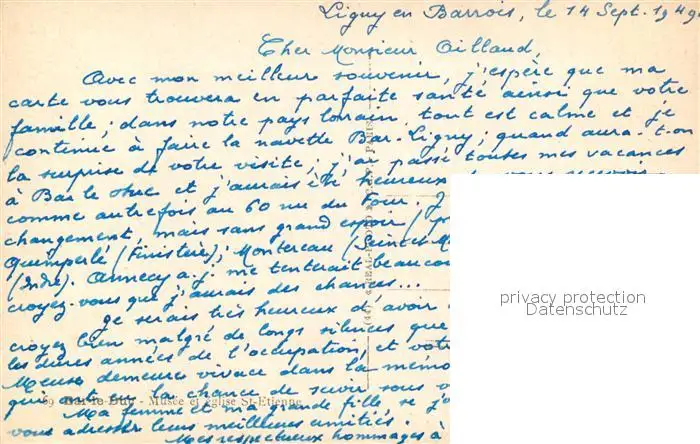 Ligny en Barrois, le 14 Sept. 1949.
Cher Monsieur Oillaud,
Avec mon meilleur souvenir, j'espère que ma
carte vous trouvera en parfaite santé ainsi que votre
famille; dans notre pays lorrain, tout est calme et je
continue à faire la navette Bar-Ligny; quand aura-t-on
la surprise de votre visite; j'ai passé toutes mes vacances
à Bar le Duc et j'aurais été heureux de vous
comme autrefois au 60 rue du Four. J
changement, mais sans grand espoir
Quimperlé (Finistère); Montereau (Seine et M
(Indre). Annecy me tenterait beaucou
croyez-vous que j'aurais des chances...
Je serais très heureux d'avoir
croyez bien malgré de longs silences que
les dures années de l'occupation, et vot
Meuse demeure vivace dans la mémo
qui ont eu la chance de servir sous v
69 Bar-le-Duc - Musée et église St-Etienne
Ma femme et ma grande fille se j
vous adresser leurs meilleures amitiés.
Mes respectueux hommages à
privacy protection
Datenschutz